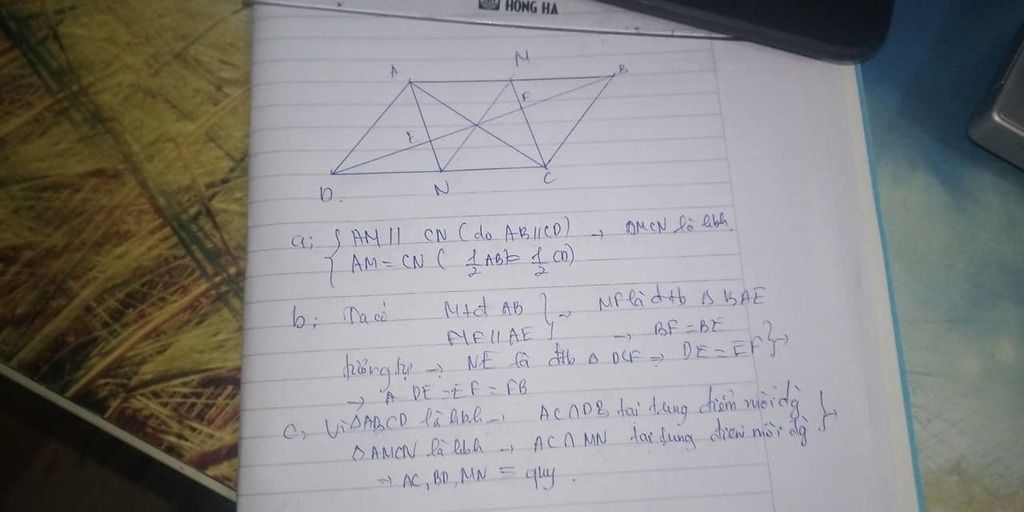 HONG HA
A M B
E F
D. N C
a; { AM // CN (do AB//CD) → AMCN là hbh.
{ AM = CN ( 1/2 AB = 1/2 CD)
b; Ta có M tđ AB } → MF là đtb Δ BAE
MF // AE } → BF = BE
tương tự → NE là đtb Δ DCF → DE = EF } →
→ DE = EF = FB
c, Vì ABCD là hbh → AC ∩ DB tại trung điểm mỗi đg }
AMCN là hbh → AC ∩ MN tại trung điểm mỗi đg } →
→ AC, BD, MN = quy.